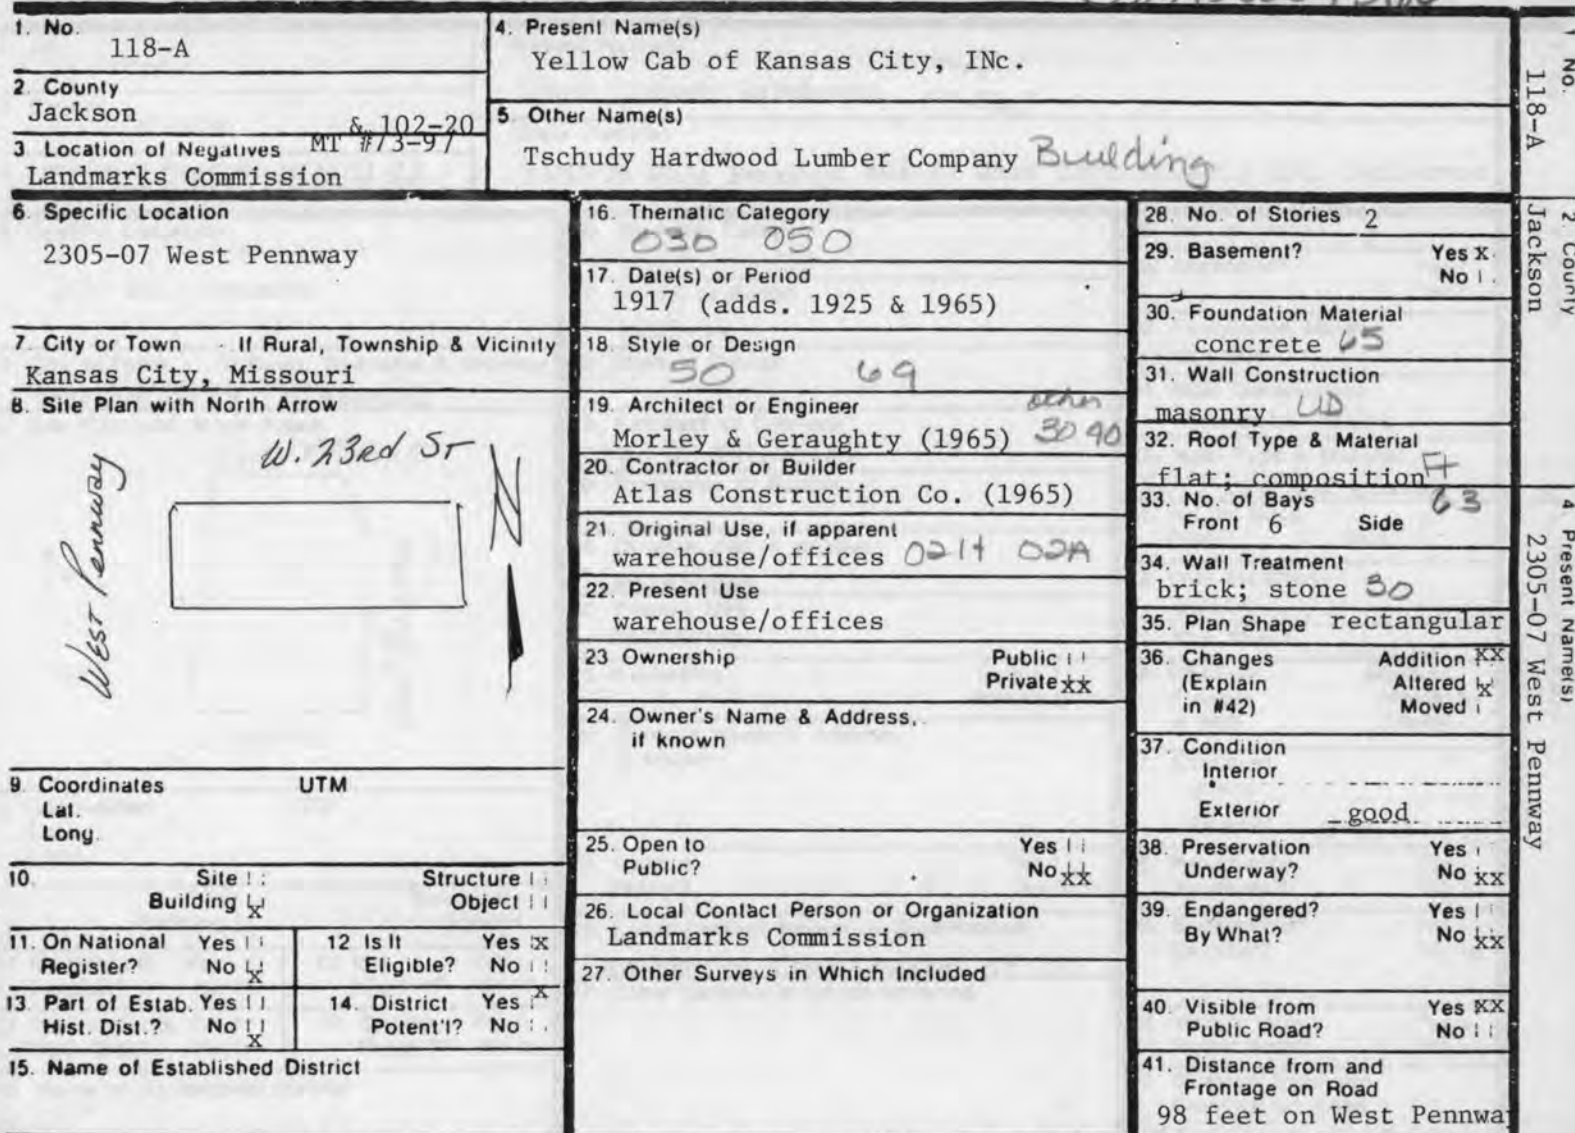 1. No.
118-A
2. County
Jackson
& 102-20
3 Location of Negatives MT #73-97
Landmarks Commission
4. Present Name(s)
Yellow Cab of Kansas City, INc.
5 Other Name(s)
Tschudy Hardwood Lumber Company Building
6. Specific Location
2305-07 West Pennway
7. City or Town If Rural, Township & Vicinity
Kansas City, Missouri
8. Site Plan with North Arrow
W. 23rd St
West Pennway
N
9. Coordinates UTM
Lat.
Long.
10. Site Structure
Building X Object
11. On National Yes
Register? No X
12 Is It Yes X
Eligible? No
13. Part of Estab. Yes
Hist. Dist.? No X
14. District Yes X
Potent'l? No
15. Name of Established District
16. Thematic Category
030 050
17. Date(s) or Period
1917 (adds. 1925 & 1965)
18. Style or Design
50 69
19. Architect or Engineer other
Morley & Geraughty (1965) 30 40
20. Contractor or Builder
Atlas Construction Co. (1965)
21. Original Use, if apparent
warehouse/offices 02H 02A
22. Present Use
warehouse/offices
23 Ownership Public
Private xx
24. Owner's Name & Address,
if known
25. Open to Yes
Public? No xx
26. Local Contact Person or Organization
Landmarks Commission
27. Other Surveys in Which Included
28. No. of Stories 2
29. Basement? Yes X
No
30. Foundation Material
concrete 65
31. Wall Construction
masonry UD
32. Roof Type & Material
flat; composition FT
63
33. No. of Bays
Front 6 Side
34. Wall Treatment
brick; stone 30
35. Plan Shape rectangular
36. Changes Addition XX
(Explain Altered X
in #42) Moved
37. Condition
Interior
Exterior good
38. Preservation Yes
Underway? No xx
39. Endangered? Yes
By What? No xx
40. Visible from Yes XX
Public Road? No
41. Distance from and
Frontage on Road
98 feet on West Pennway
No.
118-A
2. County
Jackson
4. Present Name(s)
2305-07 West Pennway